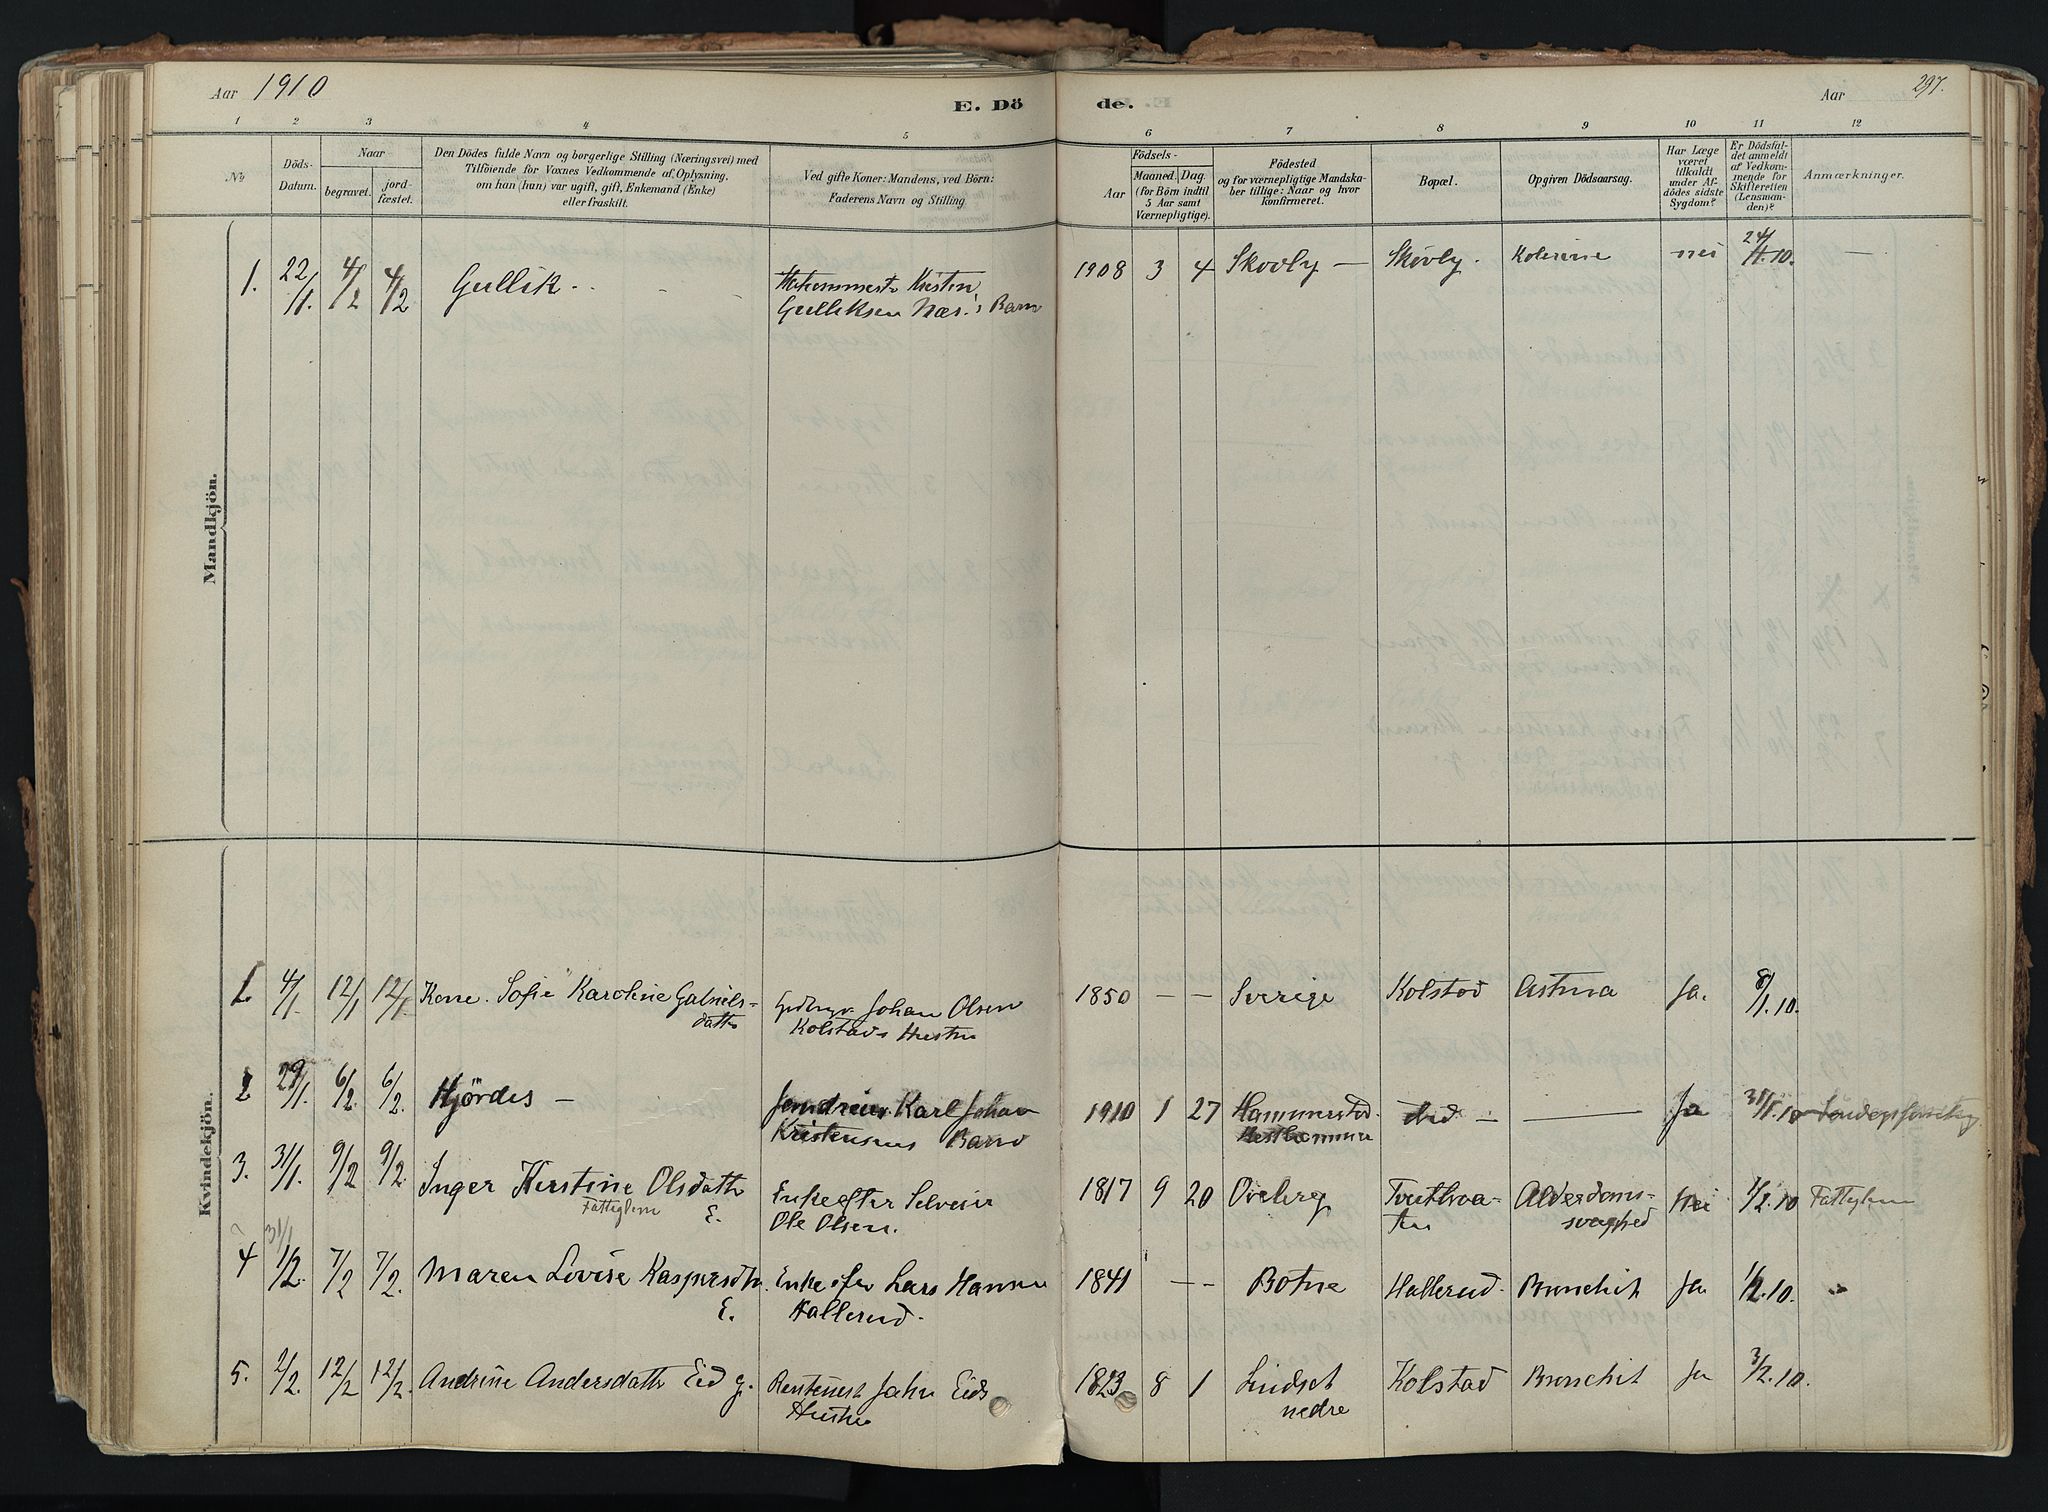 Aar 1910
E. Dö
de.
Aar
297.
1 2 3 4 5 6 7 8 9 10 11 12
No
Döds-
Datum.
Naar
begravet.
jord-
fæstet.
Den Dödes fulde Navn og borgerlige Stilling (Næringsvei) med
Tilföiende for Voxnes Vedkommende af Oplysning,
om han (hun) var ugift, gift, Enkemand (Enke)
eller fraskilt.
Ved gifte Koner: Mandens, ved Börn:
Faderens Navn og Stilling
Födsels-
Aar
Maaned.
Dag.
(for Börn indtil
5 Aar samt
Værnepligtige).
Födested
og for værnepligtige Mandska-
ber tillige: Naar og hvor
konfirmeret.
Bopæl.
Opgiven Dödsaarsag.
Har Læge
været
tilkaldt
under Af-
dödes sidste
Sygdom?
Er Dödsfal-
det anmeldt
af Vedkom-
mende for
Skifteretten
(Lensman-
den)?
Anmærkninger.
Mandkjön.
1. 22/1. 4/2 4/2 Gullik Kristen 1908 3 4 Skovly — Skovly. Kolerine nei 24/1.10. —
Gulliksen Næs's Barn
Kvindekjön.
1. 4/1. 12/1 12/1 Kone Sofie Karoline Gabriels- Johan Olsen 1850 — — Sverige Kolstad Astma Ja. 8/1.10.
datter Kolstads Hustru
2. 29/1. 6/2. 6/2. Hjördis — Karl Johan 1910 1 27 Hammerstad. — Ja 31/1.10
Kristensens Barn
3. 31/1. 9/2 9/2. Inger Kirstine Olsdatter Enke efter Selveier 1817 9 20 Oreberg Alderdoms- nei 1/2.10 Fattiglem
Fattiglem E. Ole Olsen. svaghed
31/1
4 1/2. 7/2 7/2. Maren Lovise Kaspersdtr. Enke efter Lars Hansen 1841 — — Botne Hallerud. Bronchit Ja 1/2.10.
E. Hallerud.
5. 2/2. 12/2 12/2. Andrine Andersdatter Eid g. Rentenist John Eids 1823 8 1 Lindset Kolstad Bronchit Ja 3/2.10.
Hustru nedre